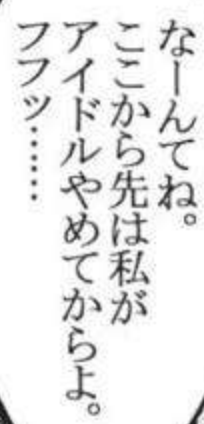 なーんてね。
ここから先は私が
アイドルやめてからよ。
フフッ……